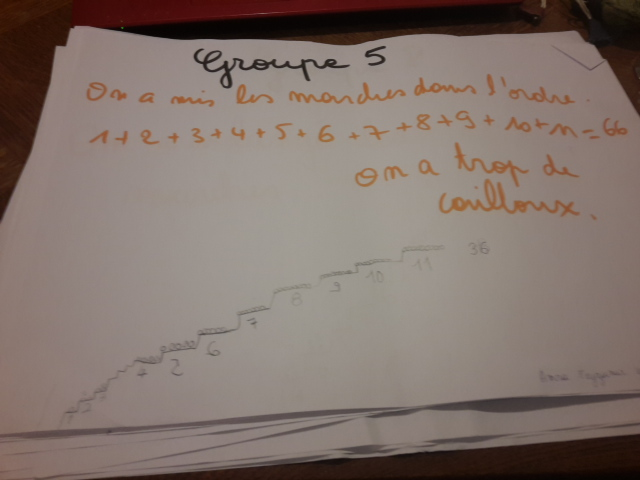 Groupe 5
On a mis les marches dans l'ordre.
1+2+3+4+5+6+7+8+9+10+11=66
On a trop de
cailloux.
36
11
10
9
8
7
6
2
4